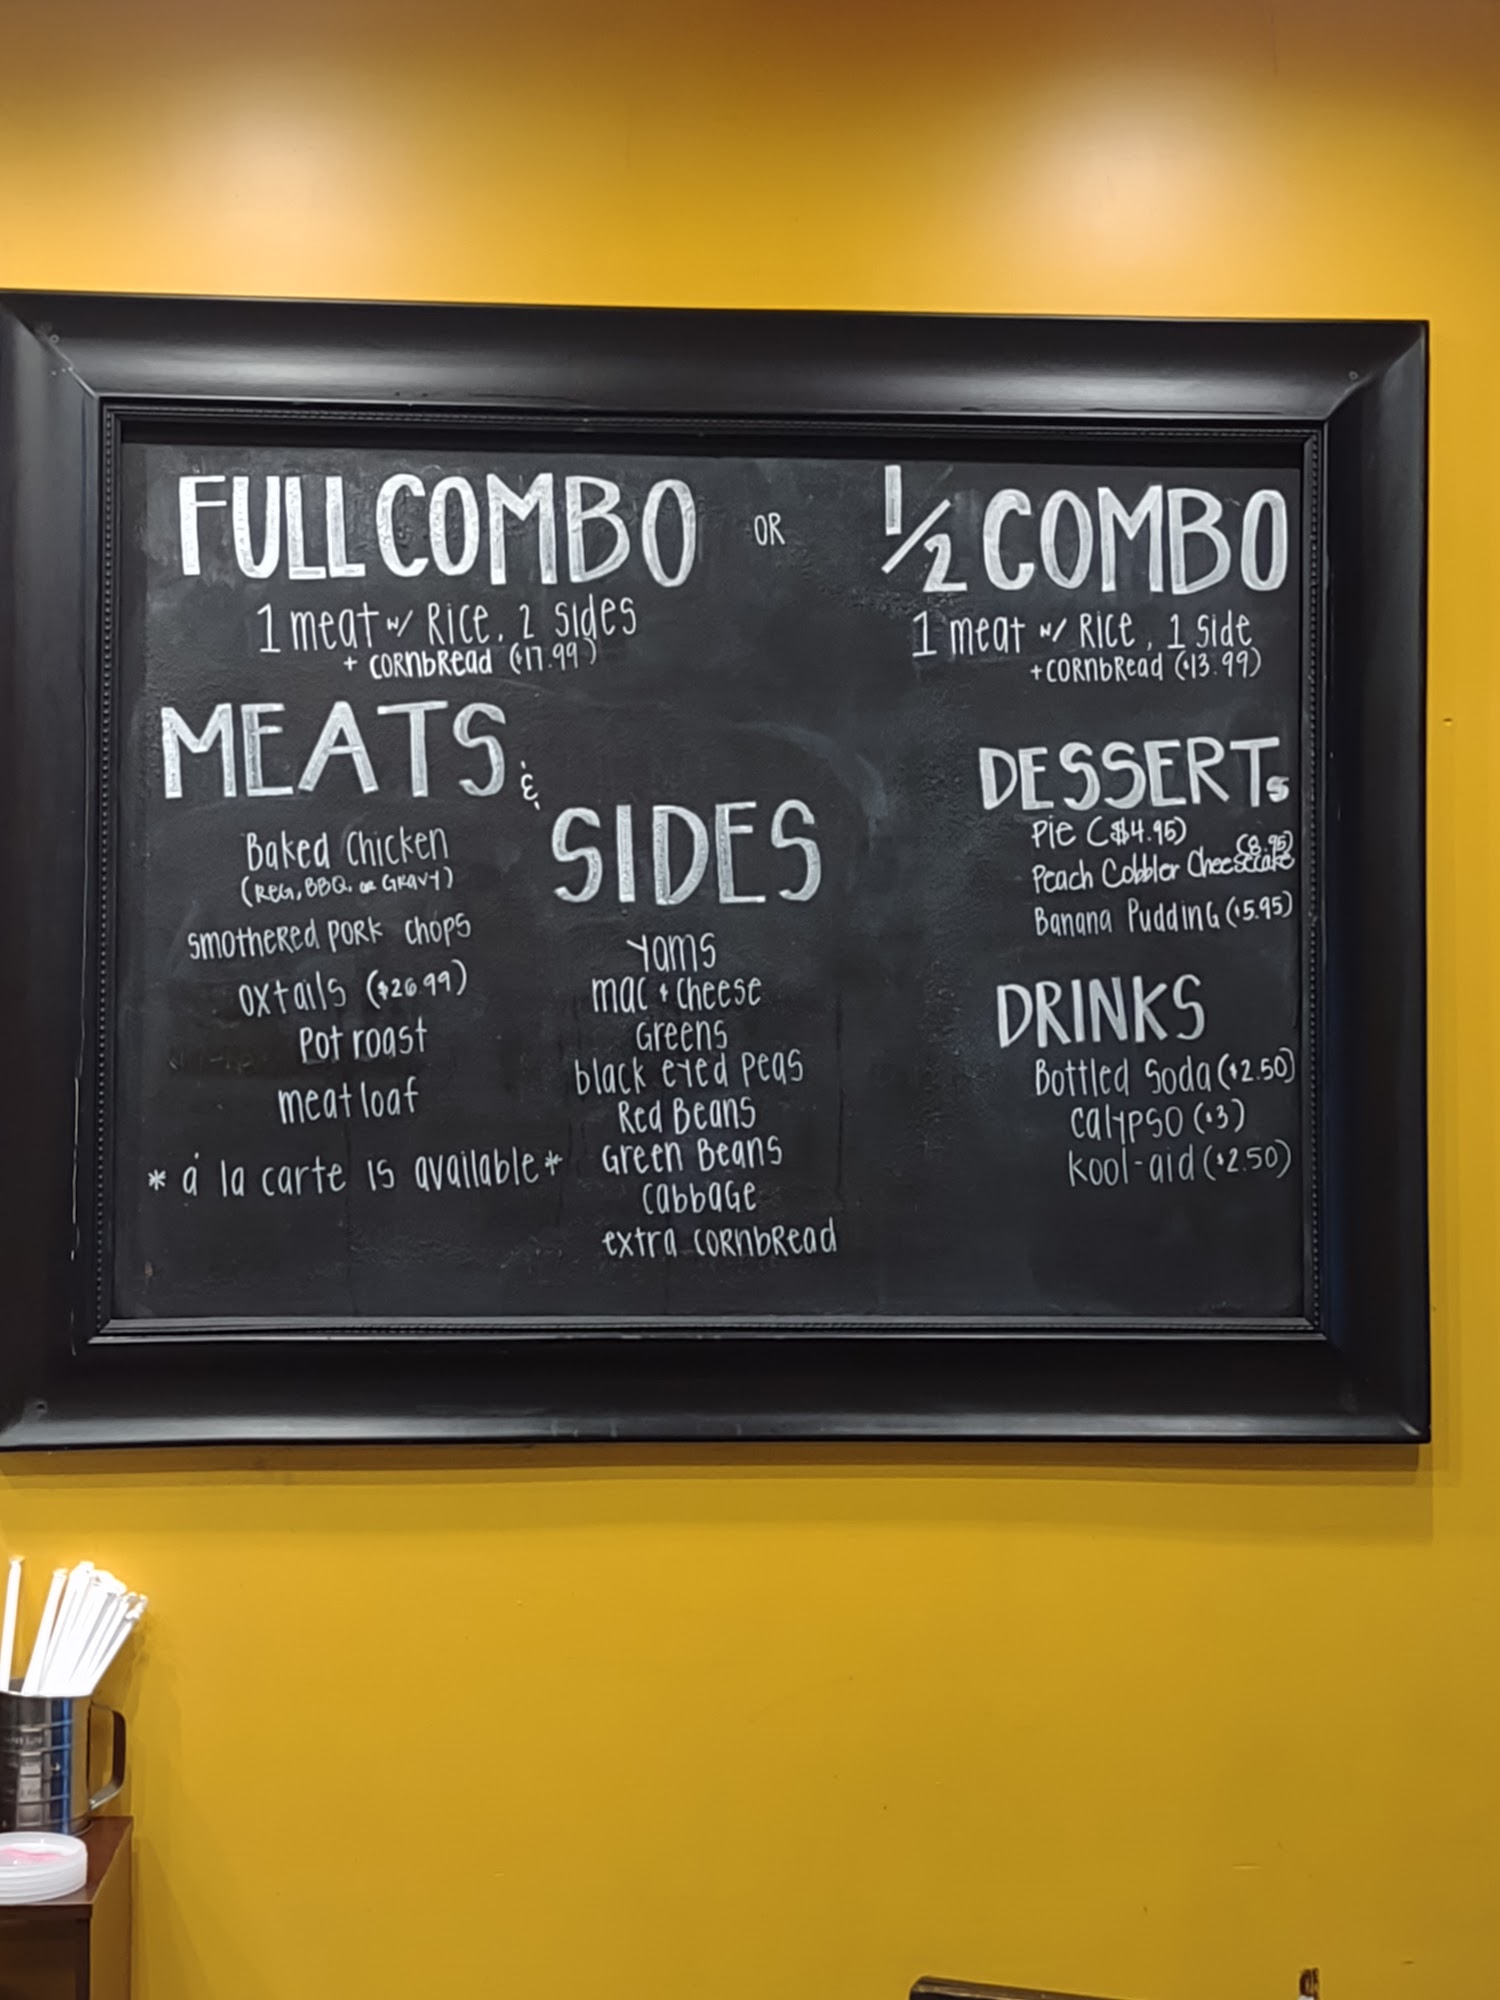 FULL COMBO
1 meat w/ Rice, 2 sides
+ CORNbRead ($17.99)
OR
1/2 COMBO
1 meat w/ Rice, 1 side
+ CORNbRead ($13.99)
MEATS
&
Baked Chicken
(REG, BBQ, OR GRAVY)
smothered PORK chops
oxtails ($26.99)
Pot roast
meatloaf
* á la carte is available *
SIDES
Yams
mac + cheese
Greens
black eyed peas
Red Beans
Green Beans
Cabbage
extra CORNbRead
DESSERTs
Pie ($4.95)
Peach Cobbler Cheesecake (8.95)
Banana Pudding ($5.95)
DRINKS
Bottled Soda ($2.50)
Calypso ($3)
Kool-aid ($2.50)